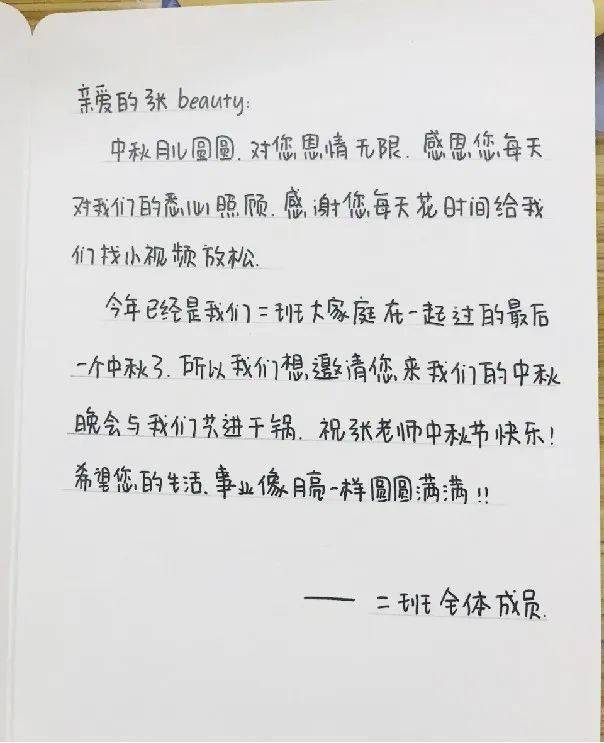 亲爱的张 beauty:
中秋月儿圆圆.对您恩情无限.感恩您每天
对我们的悉心照顾.感谢您每天花时间给我
们找小视频放松.
今年已经是我们二班大家庭在一起过的最后
一个中秋了.所以我们想邀请您来我们的中秋
晚会与我们共进干锅.祝张老师中秋节快乐!
希望您的生活、事业像月亮一样圆圆满满!!
—— 二班全体成员.